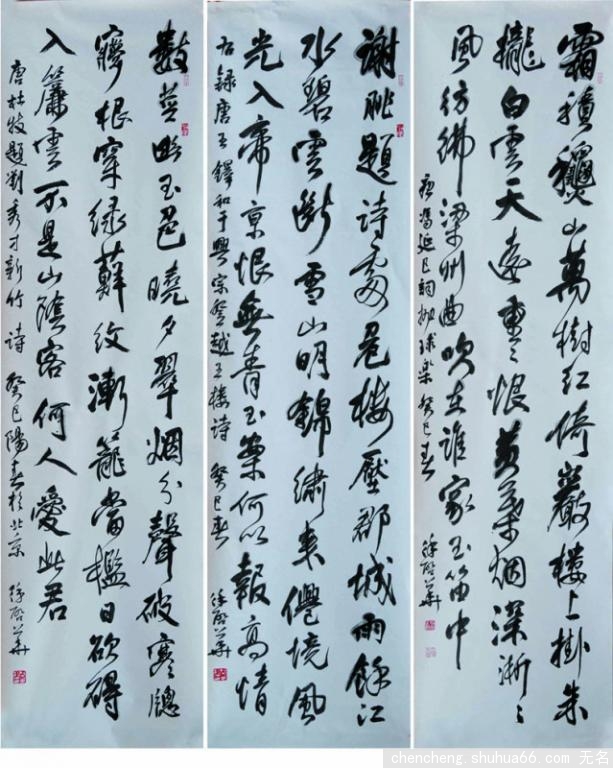 霜積穐山萬樹紅倚巖樓上掛朱
攏白雲天遠重〻恨黄葉烟深淅〻
風彷彿梁州曲吹在誰家玉笛中
唐馮延巳詞抛球樂癸巳春
徐啓華
謝朓題詩處危樓壓郡城雨餘江
水碧雲斷雪山明錦繡来僊境風
光入帝京恨無青玉案何以報高情
右録唐王鐸和于興宗登越王樓詩 癸巳春 徐啓華
數莖幽玉色曉夕翠烟分聲破寒牕
夢根穿綠蘚紋漸籠當檻日欲碍
入簾雲不是山陰客何人愛此君
唐杜牧題劉秀才新竹詩 癸巳陽春於北京 徐啓華
chencheng.shuhua66.com 无名